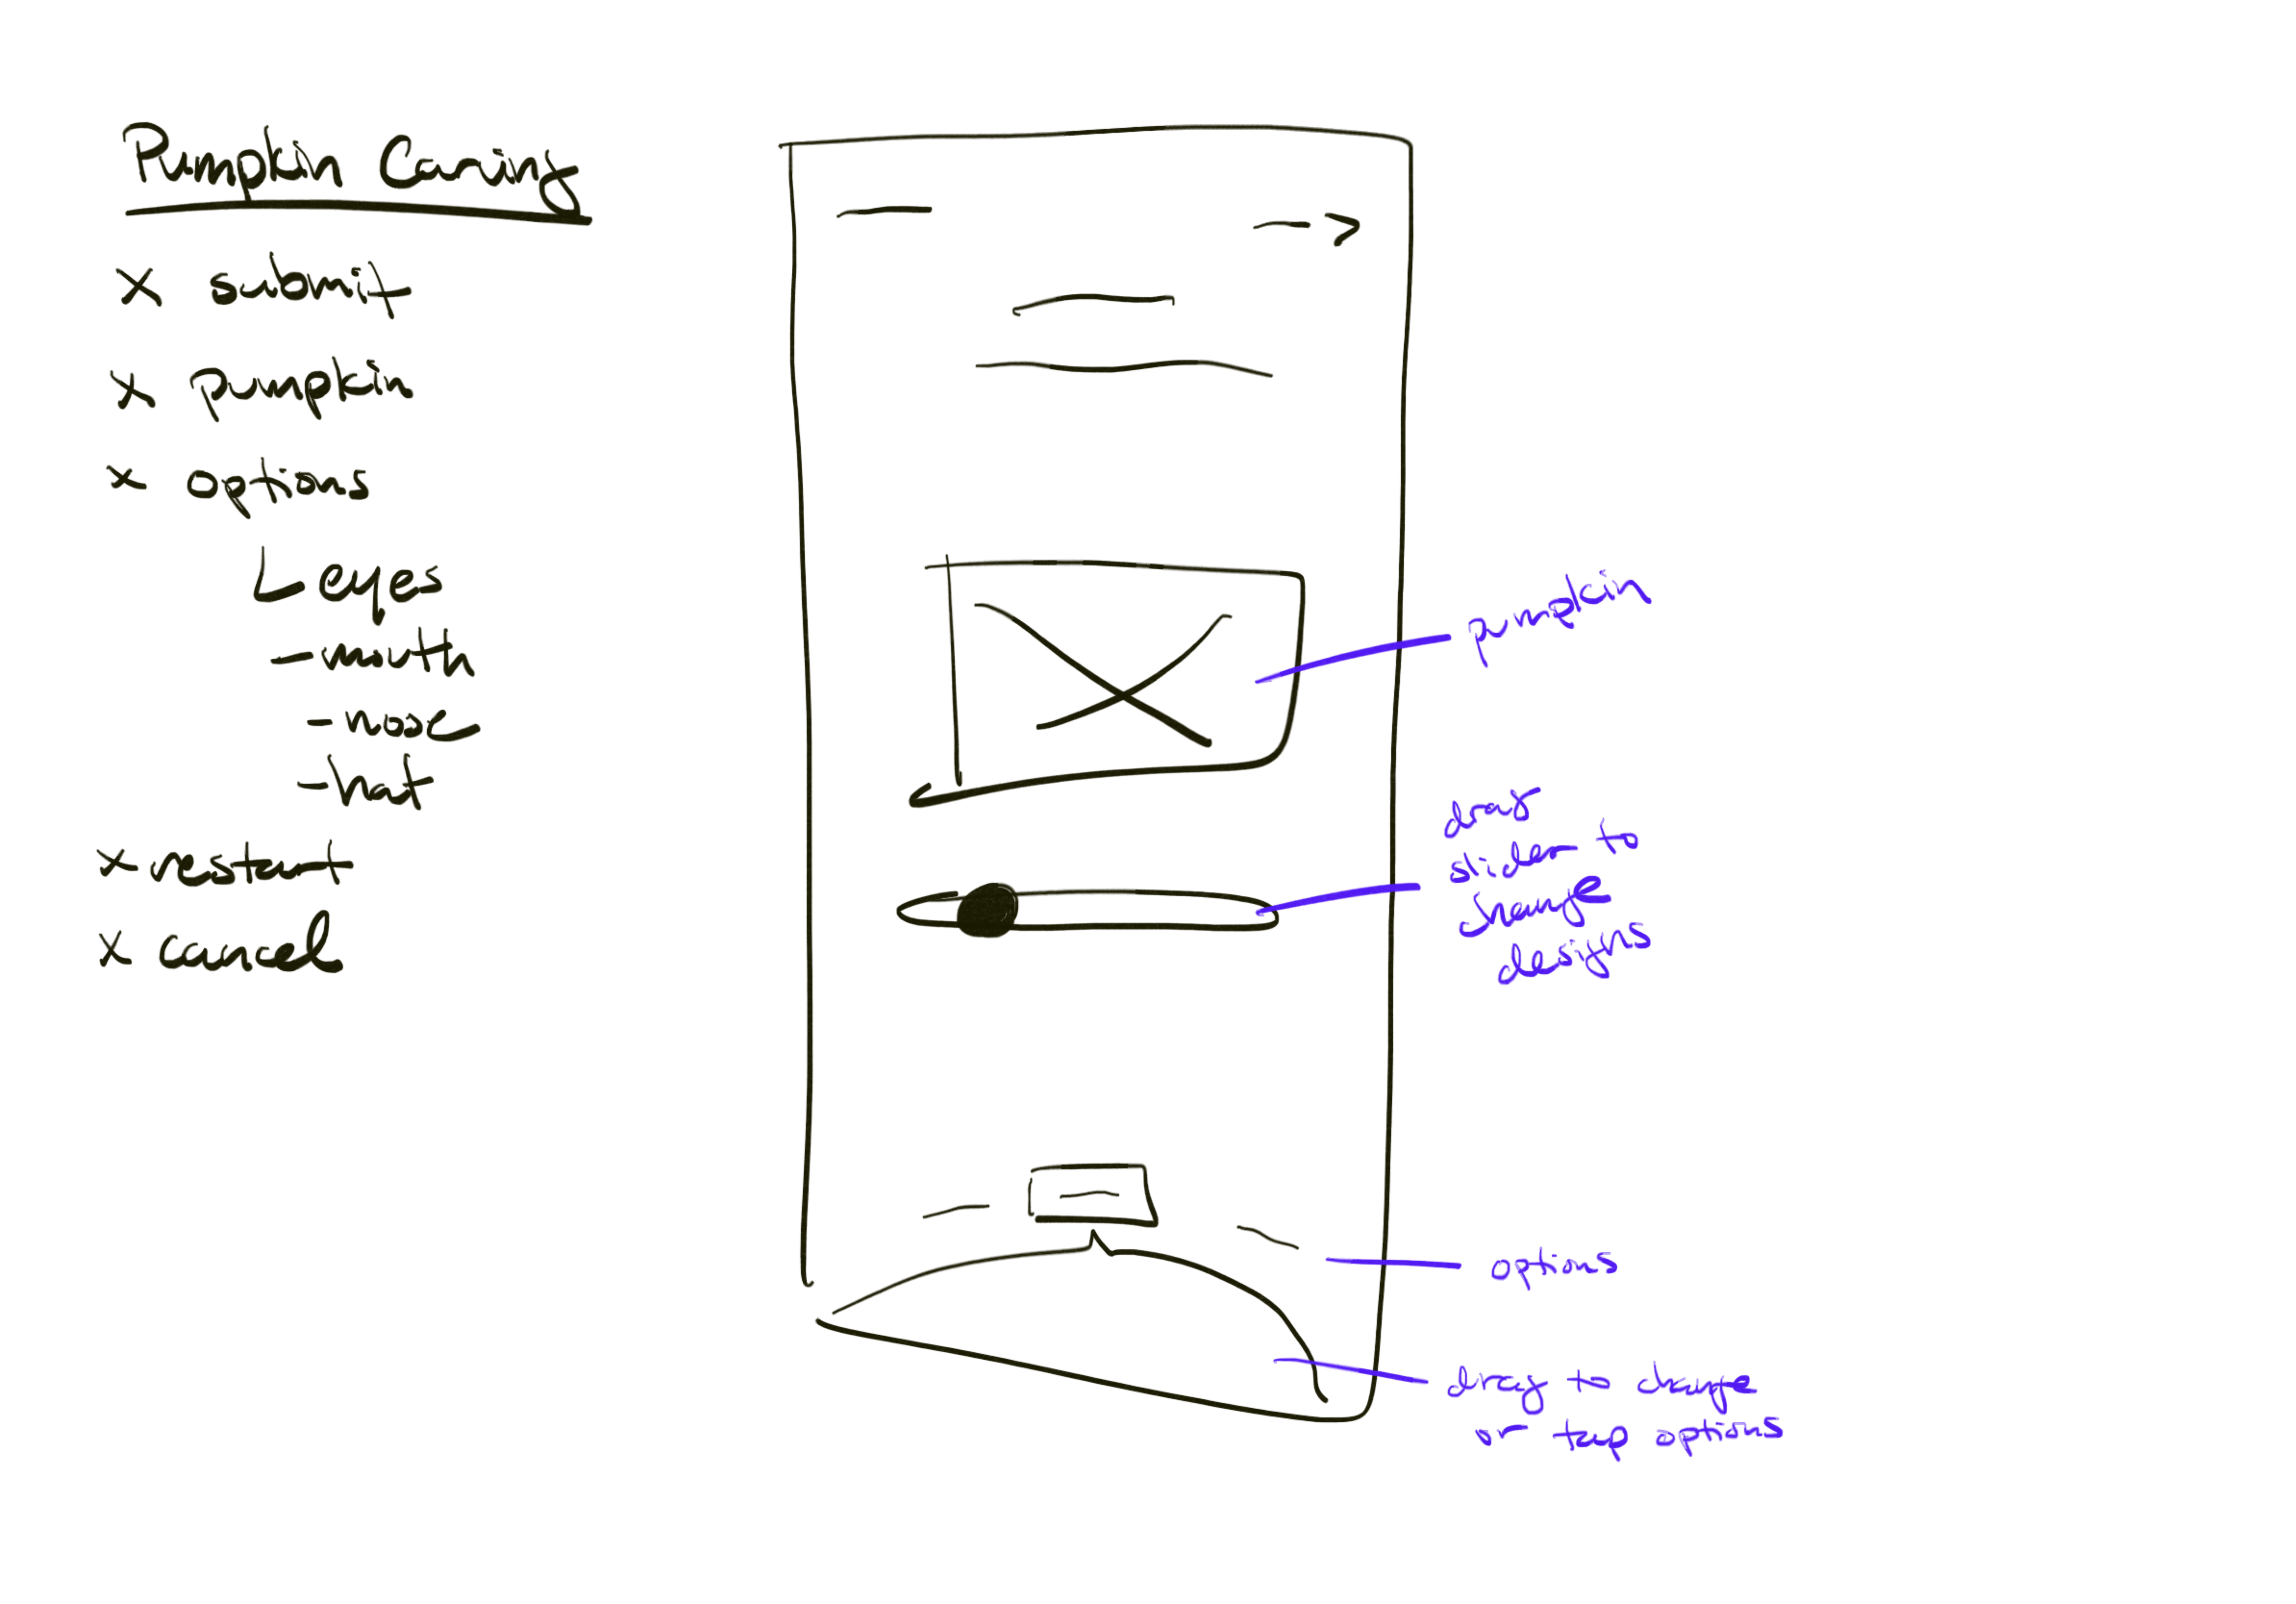 Pumpkin Carving
x submit
x pumpkin
x options
eyes
- mouth
- nose
- hat
x restart
x cancel
pumpkin
drag
slider to
change
designs
options
drag to change
or tap options